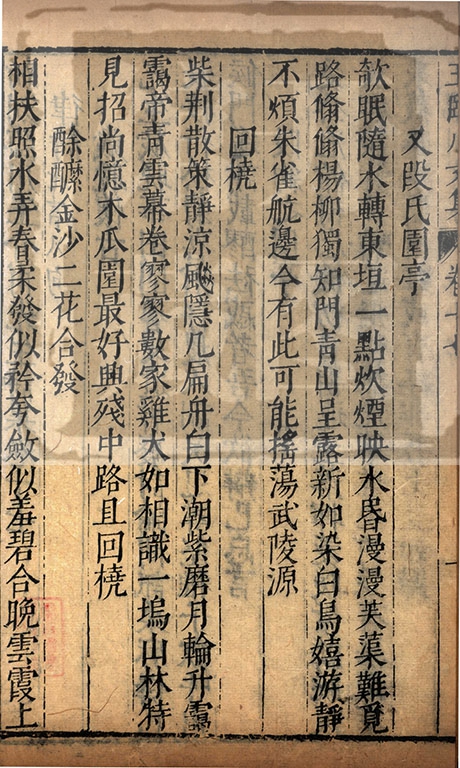 王臨川文集 卷十七
又段氏園亭
欹眠隨水轉東垣一點炊煙映水昏漫漫芙蕖難覓
路翛翛楊柳獨知門青山呈露新如染白鳥嬉游靜
不煩朱雀航邊今有此可能搖蕩武陵源
回橈
柴荆散策靜涼飈隱几扁舟白下潮紫磨月輪升靄
靄帝青雲幕卷寥寥數家雞犬如相識一塢山林特
見招尚憶木瓜園最好興殘中路且回橈
酴醿金沙二花合發
相扶照水弄春柔發似矜夸斂似羞碧合晚雲霞上